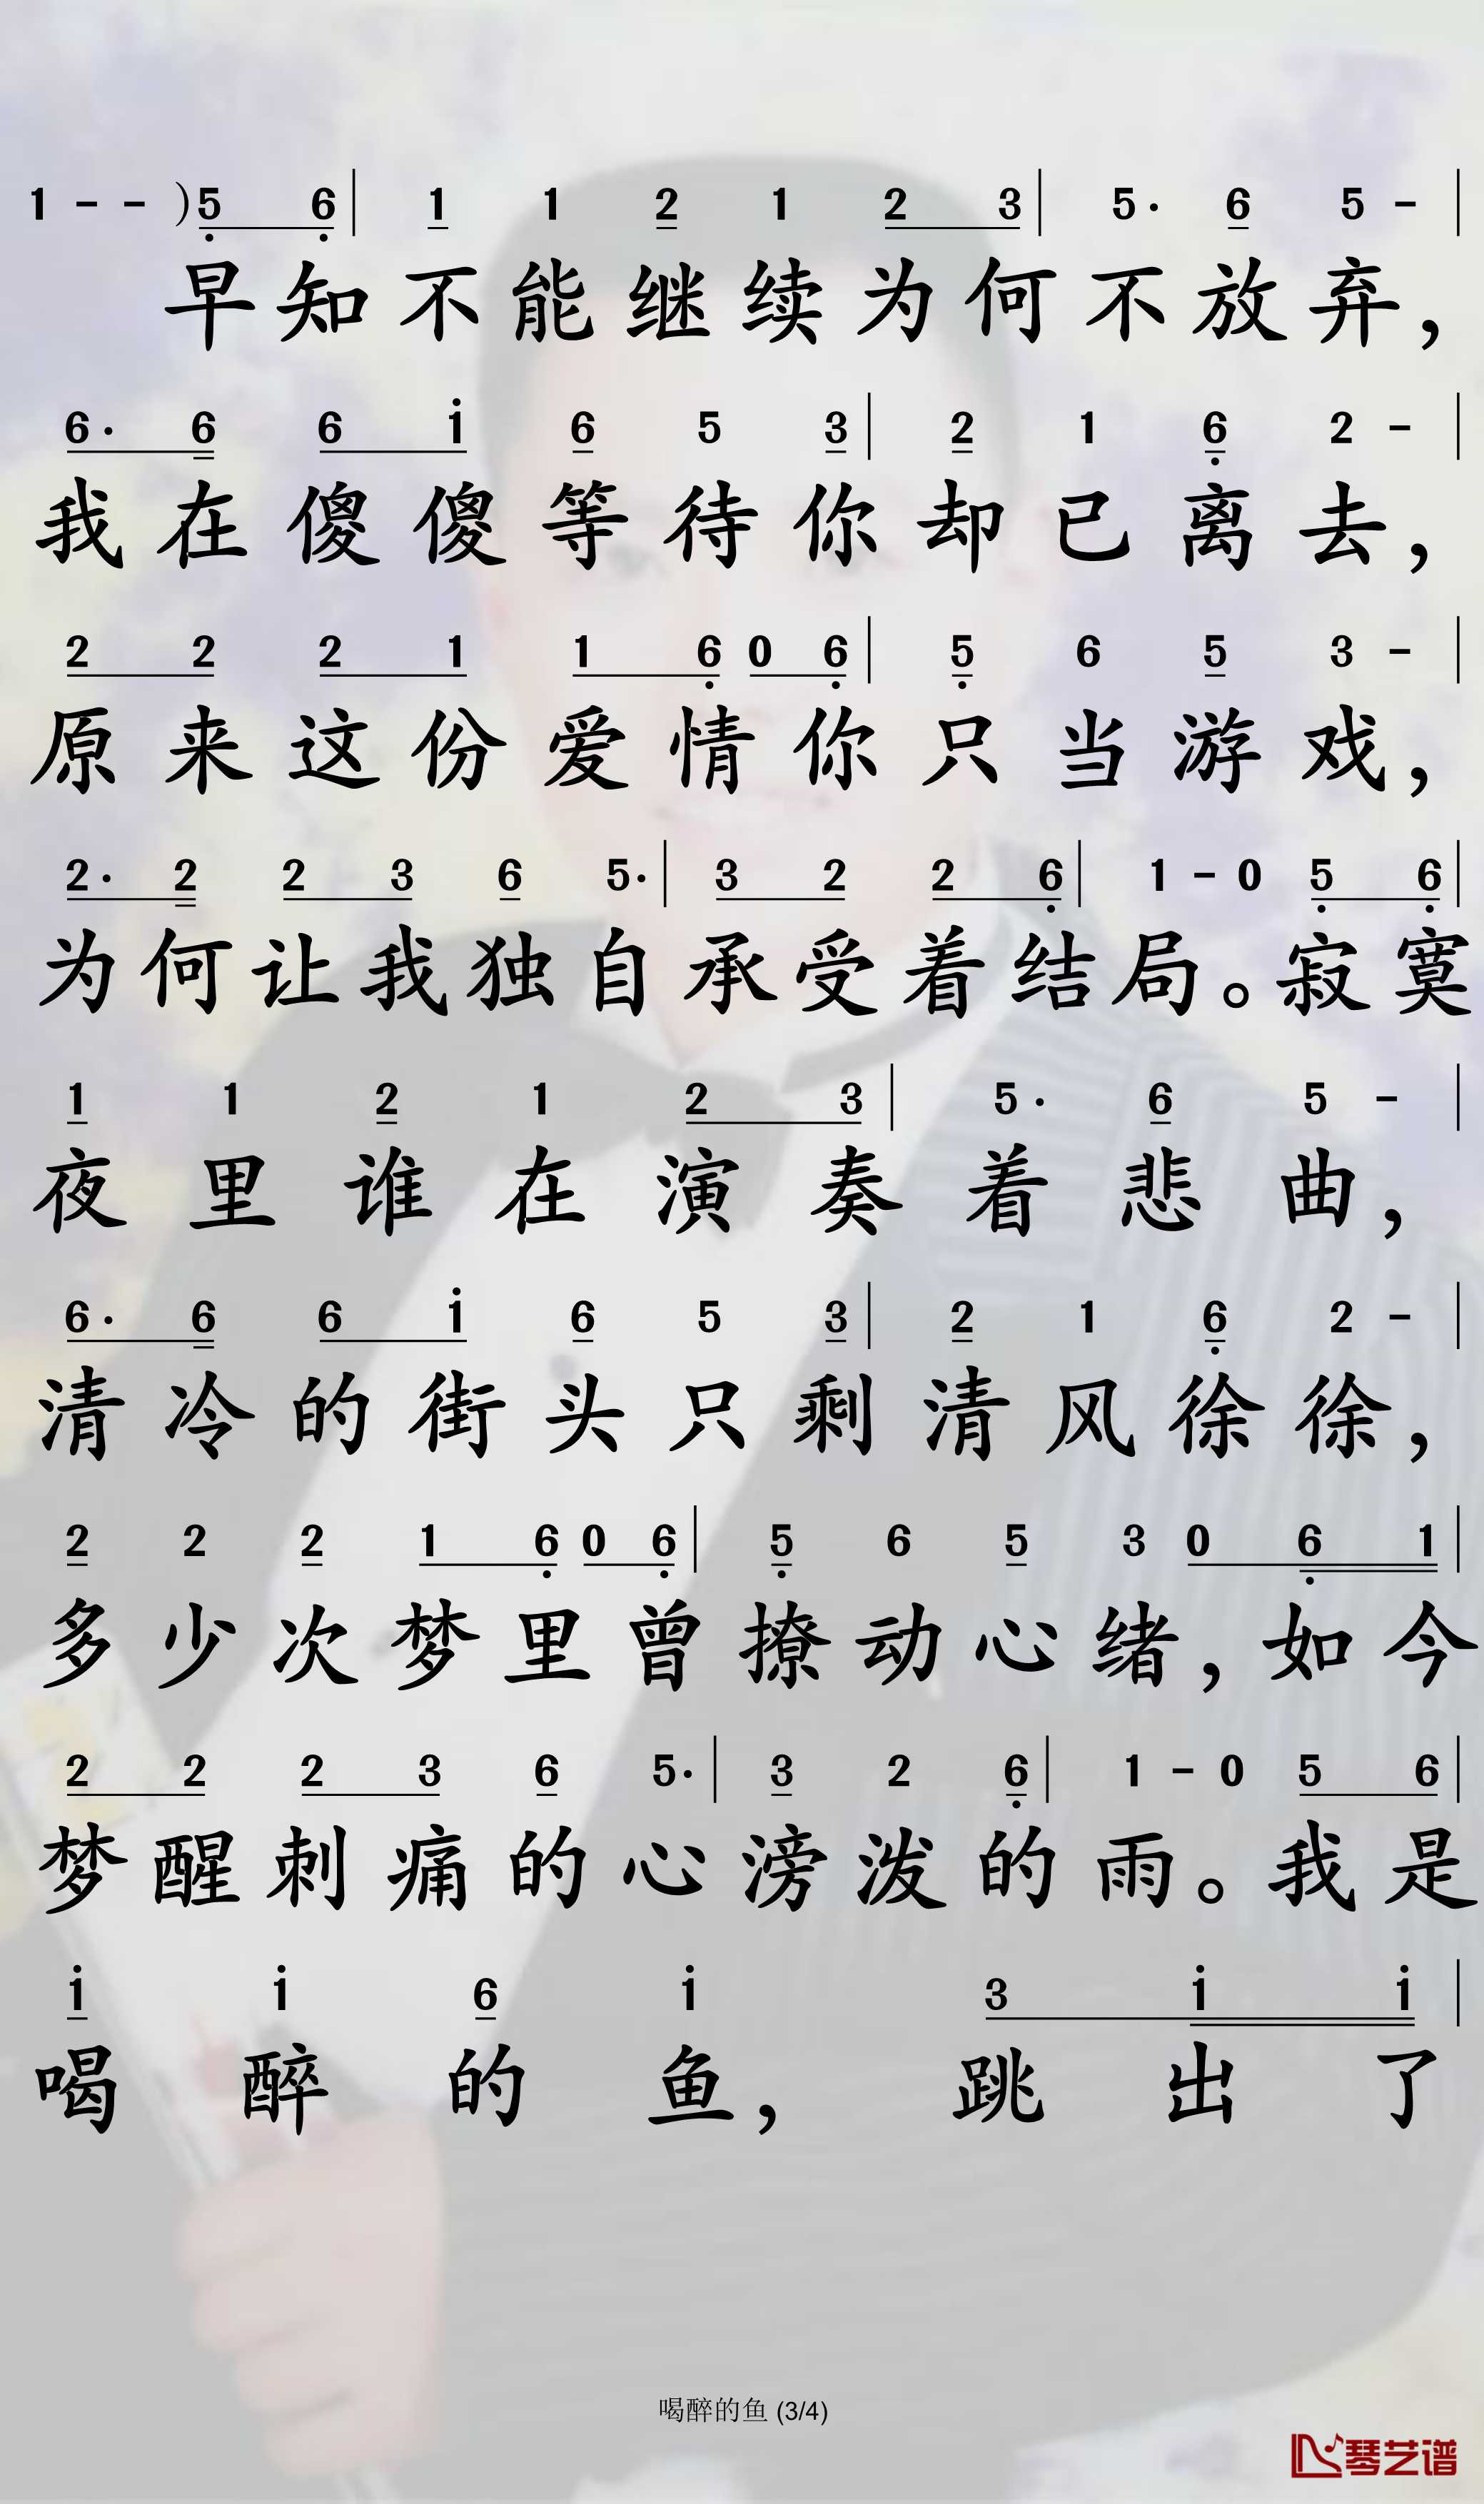 1 - - ) 5 6 | 1 1 2 1 2 3 | 5 · 6 5 - |
早知不能继续为何不放弃，
6 · 6 6 i 6 5 3 | 2 1 6 2 - |
我在傻傻等待你却已离去，
2 2 2 1 1 6 0 6 | 5 6 5 3 - |
原来这份爱情你只当游戏，
2 · 2 2 3 6 5 · | 3 2 2 6 | 1 - 0 5 6 |
为何让我独自承受着结局。寂寞
1 1 2 1 2 3 | 5 · 6 5 - |
夜里谁在演奏着悲曲，
6 · 6 6 i 6 5 3 | 2 1 6 2 - |
清冷的街头只剩清风徐徐，
2 2 2 1 6 0 6 | 5 6 5 3 0 6 1 |
多少次梦里曾撩动心绪，如今
2 2 2 3 6 5 · | 3 2 6 | 1 - 0 5 6 |
梦醒刺痛的心滂泼的雨。我是
i i 6 i 3 i i |
喝醉的鱼，跳出了
喝醉的鱼 (3/4)
琴艺谱